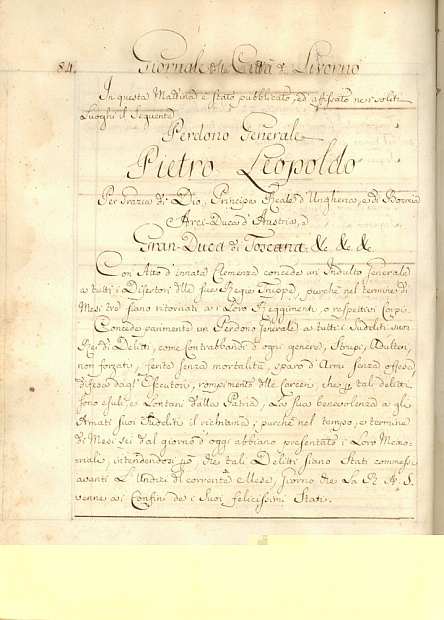 84. Giornale della Città di Livorno
In questa Mattina è stato pubblicato, ed affissato ne' soliti
Luoghi il Seguente
Perdono Generale
Pietro Leopoldo
Per Grazia di Dio, Principe Reale d'Ungheria, e di Boemia
Arci-Duca d'Austria, e
Gran-Duca di Toscana &c. &c. &c.
Con Atto d'innata Clemenza concede un Indulto Generale
a tutti i Disertori delle sue Regie Truppe, purchè nel termine di
Mesi tre siano ritornati a i Loro Reggimenti, o respettivi Corpi.
Concede parimente un Perdono Generale a tutti i Sudditi suoi
Rei di Delitti, come Contrabbandi d'ogni genere, Strupi, Adulteri,
non forzati, ferite senza mortalità, sparo d'Armi senza offesa
difesa dagl'Esecutori, rompimento delle Carceri, che p tali delitti
sono esuli, e Lontani dalla Patria, La sua benevolenza a gli
Amati suoi Sudditi il richiama; purchè nel tempo, e termine
di Mesi sei dal giorno d'oggi abbiano presentato i Loro Memo-
riali, intendendosi però, che tali Delitti siano Stati commessi
avanti L'Undici del corrente Mese, Giorno che La R. A. S.
venne a i Confini de i Suoi felicissimi Stati.